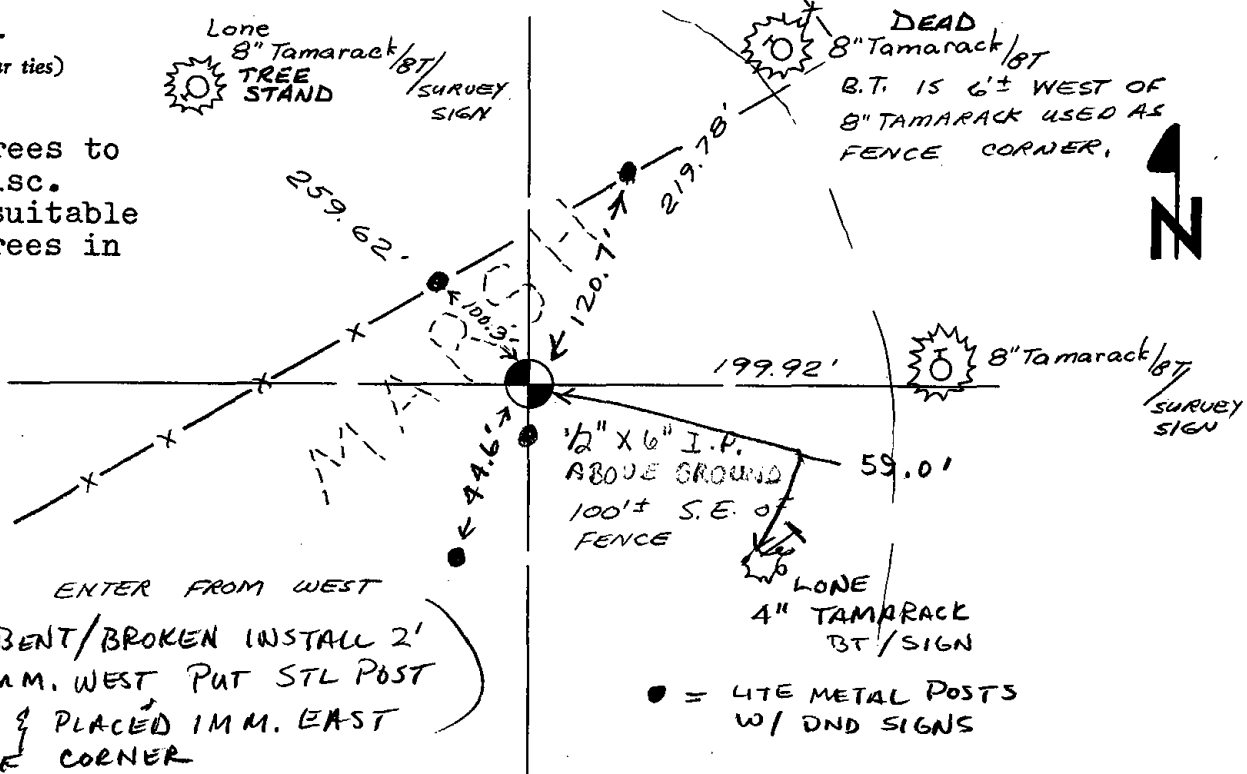 Lone
8" Tamarack/BT/
TREE
STAND
SURVEY
SIGN
ties)
rees to
sc.
suitable
rees in
DEAD
8" Tamarack/BT
B.T. IS 6'± WEST OF
8" TAMARACK USED AS
FENCE CORNER.
N
259.62'
219.78'
120.7'
100.3'
MARSH
199.92'
8" Tamarack/BT/
SURVEY
SIGN
44.6'
1/2" X 6" I.P.
ABOVE GROUND
100'± S.E. of
FENCE
59.0'
LONE
4" TAMARACK
BT/SIGN
ENTER FROM WEST
BENT/BROKEN INSTALL 2'
M. WEST PUT STL POST
& PLACED IMM. EAST
CORNER
= LITE METAL POSTS
W/ DND SIGNS